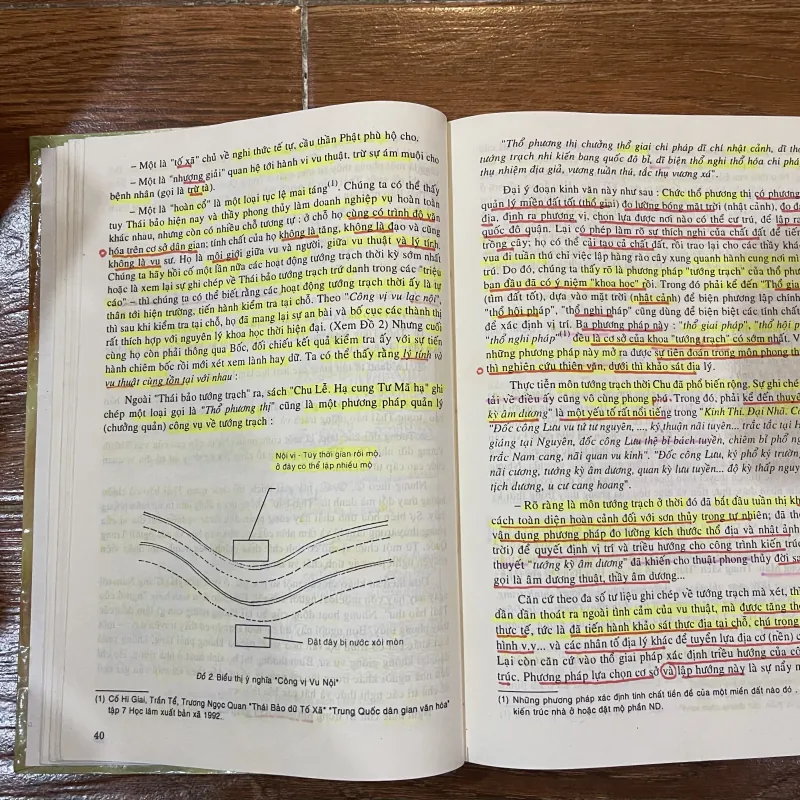 – Một là "tố xã" chủ về nghi thức tế tự, cầu thần Phật phù hộ cho.
– Một là "nhương giải" quan hệ tới hành vi vu thuật, trừ sự ám muội cho
bệnh nhân (gọi là trừ tà).
– Một là "hoàn cố" là một loại tục lệ mai táng(1). Chúng ta có thể thấy
tuy Thái bảo hiện nay và thầy phong thủy làm doanh nghiệp vụ hoàn toàn
khác nhau, nhưng còn có nhiều chỗ tương tự : ở chỗ họ cùng có trình độ văn
hóa trên cơ sở dân gian; tính chất của họ không là tăng, không là đạo và cũng
không là vu sư. Họ là môi giới giữa vu và người, giữa vu thuật và lý tính.
Chúng ta hãy hồi cố một lần nữa các hoạt động tướng trạch thời kỳ sớm nhất
hoặc là xem lại sự ghi chép về Thái bảo tướng trạch trứ danh trong các "triệu
cáo" – thì chúng ta có thể biết rằng các hoạt động tướng trạch thời ấy là tự
thân tới hiện trường, tiến hành kiểm tra tại chỗ. Theo "Công vị vu lạc nội",
thì sau khi kiểm tra tại chỗ, họ đã mang lại sự an bài và bố cục các thành thị
rất thích hợp với nguyên lý khoa học thời hiện đại. (Xem Đồ 2) Nhưng cuối
cùng họ còn phải thông qua Bốc, đối chiếu kết quả kiểm tra ấy với sự tiến
hành chiêm bốc rồi mới xét xem lành hay dữ. Ta có thể thấy rằng lý tính và
vu thuật cùng tồn tại với nhau :
Ngoài "Thái bảo tướng trạch" ra, sách "Chu Lễ. Hạ cung Tư Mã hạ" ghi
chép một loại gọi là "Thổ phương thị" cũng là một phương pháp quản lý
(chưởng quản) công vụ về tướng trạch :
Nội vị - Tùy thời gian rồi mộ,
ở đây có thể lập nhiều mộ
Đất đây bị nước xói mòn
Đồ 2 Biểu thị ý nghĩa "Công vị Vu Nội"
(1) Cố Hi Giai, Trần Tể, Trương Ngọc Quan "Thái Bảo dữ Tố Xã" "Trung Quốc dân gian văn hóa"
tập 7 Học lâm xuất bản xã 1992.
40
"Thổ phương thị chưởng thổ giai chi pháp dĩ chí nhật cảnh, dĩ thổ
tướng trạch nhi kiến bang quốc đô bỉ, dĩ biện thổ nghi thổ hóa chi pháp
thụ nhiệm địa giả, vương tuần thú, tắc thụ vương xá".
Đại ý đoạn kinh văn này như sau : Chức thổ phương thị có phương
quản lý miền đất tốt (thổ giai) đo lường bóng mặt trời (nhật cảnh), đo đạ
địa, định ra phương vị, chọn lựa được nơi nào có thể cư trú, để lập ra
quốc đô quận. Lại có phép làm rõ sự thích nghi của chất đất để tiến
trồng cây; họ có thể cải tạo cả chất đất, rồi trao lại cho các thầy khá
vua đi tuần thú chỉ việc lập hàng rào cây xung quanh hành cung nơi mì
trú. Do đó, chúng ta thấy rõ là phương pháp "tướng trạch" của thổ phư
ban đầu đã có ý niệm "khoa học" rồi. Trong đó phải kể đến "Thổ gia
(tìm đất tốt), dựa vào mặt trời (nhật cảnh) để biện phương lập chính
"thổ hội pháp", "thổ nghi pháp" cũng dùng để biện biệt các tính chất
để xác định vị trí. Ba phương pháp này : "thổ giai pháp", "thổ hội p
"thổ nghi pháp"(1) đều là cơ sở của khoa "tướng trạch" có sớm nhất. V
những phương pháp này mở ra được sự tiên đoán trong môn phong th
thì nghiên cứu thiên văn, dưới thì khảo sát địa lý.
Thực tiễn môn tướng trạch thời Chu đã phổ biến rộng. Sự ghi ché
tải về điều ấy cũng vô cùng phong phú. Trong đó, phải kể đến thuyết
kỳ âm dương" là một yếu tố rất nổi tiếng trong "Kinh Thi. Đại Nhã. C
"Đốc công Lưu vu tứ tư nguyên, ..., kỳ thuận nãi tuyên... trắc tắc tại H
giáng tại Nguyên, đốc công Lưu thệ bỉ bách tuyền, chiêm bỉ phổ ng
trắc Nam cang, nãi quan vu kinh". "Đốc công Lưu, ký phổ ký trường
nãi cương, tướng kỳ âm dương, quan kỳ lưu tuyền... độ kỳ thấp nguy
tịch dương, u cư cang hoang".
– Rõ ràng là môn tướng trạch ở thời đó đã bắt đầu tuần thị kh
cách toàn diện hoàn cảnh đối với sơn thủy trong tự nhiên; đã th
vận dụng phương pháp đo lường kích thước thổ địa và nhật ảnh
trời) để quyết định vị trí và triều hướng cho công trình kiến trúc
thuyết "tướng kỳ âm dương" đã khiến cho thuật phong thủy đời sa
gọi là âm dương thuật, thầy âm dương...
Căn cứ theo đa số tư liệu ghi chép về tướng trạch mà xét, thì
dần dần thoát ra ngoài tình cảm của vu thuật, mà được tăng th
thực tế, tức là đã tiến hành khảo sát thực địa tại chỗ, chú trọng
hình v.v... và các nhân tố địa lý khác để tuyển lựa địa cơ (nền) c
Lại còn căn cứ vào thổ giai pháp xác định triều hướng của cô
trúc. Phương pháp lựa chọn cơ sở và lập hướng này là sự nẩy m
(1) Những phương pháp xác định tính chất tiền đề của một miền đất nào đó
kiến trúc nhà ở hoặc đặt mộ phần ND.